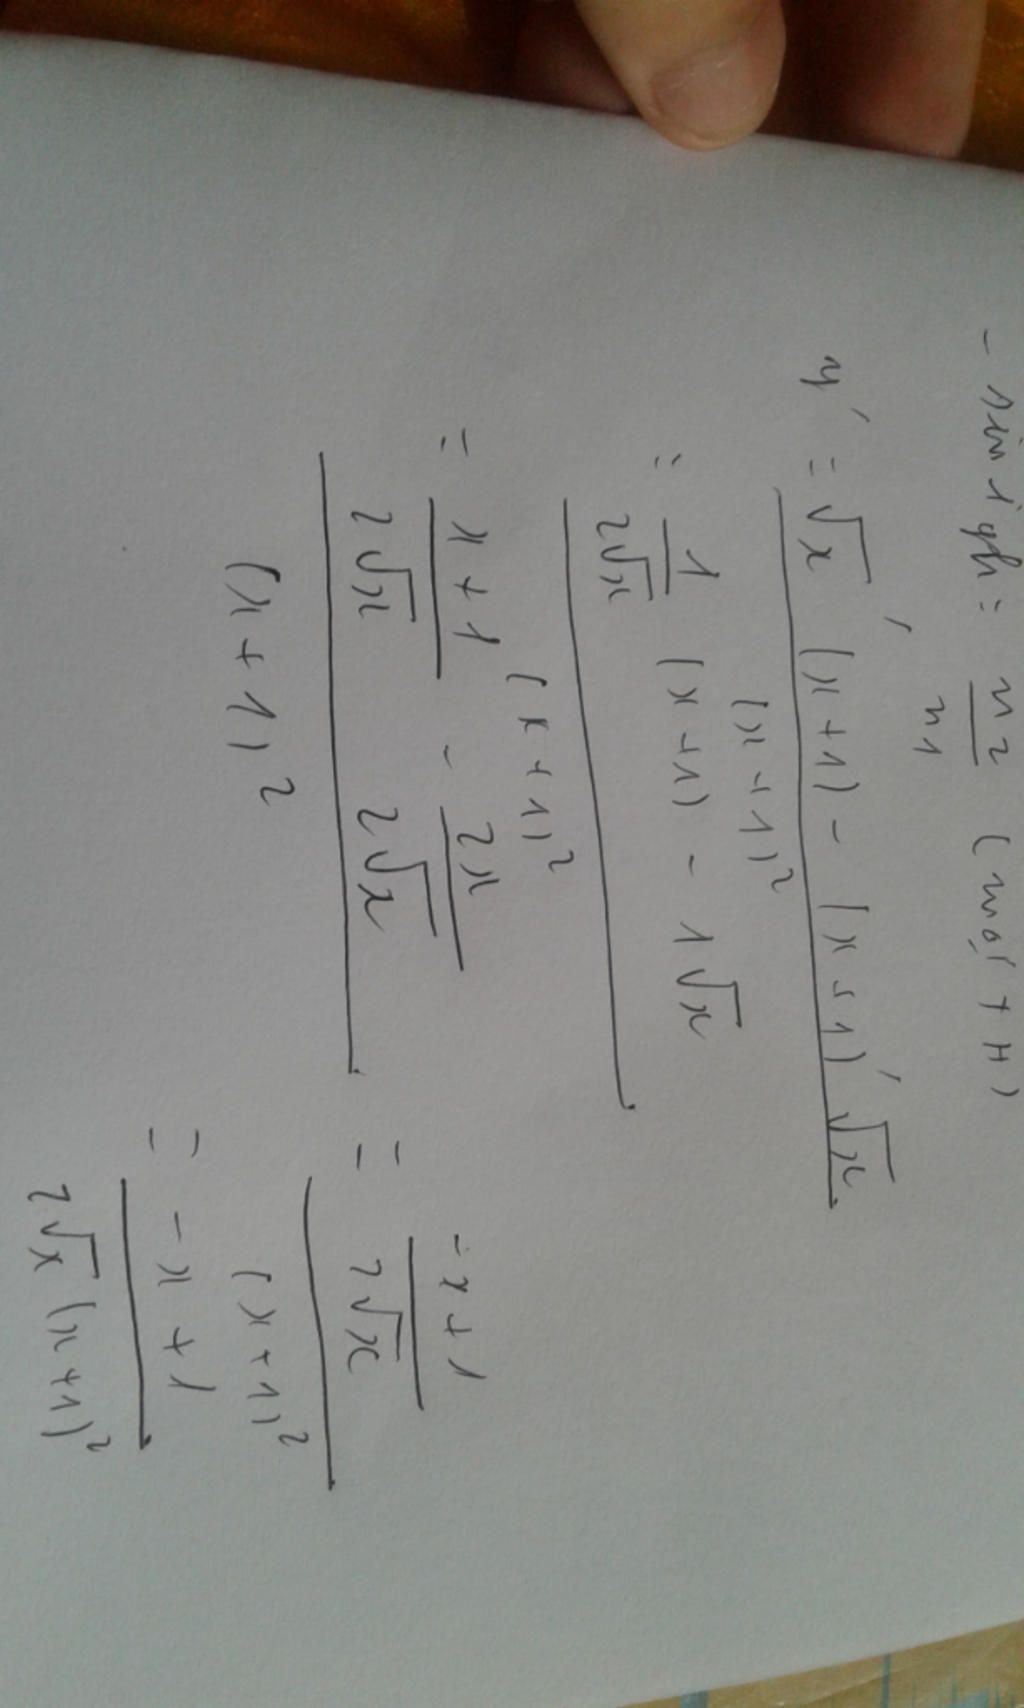 - sin igh = n2/n1 (mọi + H)
y' = (√x' (x+1) - (x+1)' √x)/(x+1)²
= (1/(2√x) (x+1) - 1√x)/(x+1)²
= ((x+1)/(2√x) - 2x/(2√x))/(x+1)²
= ((-x+1)/(2√x))/(x+1)²
= (-x+1)/(2√x (x+1)²)